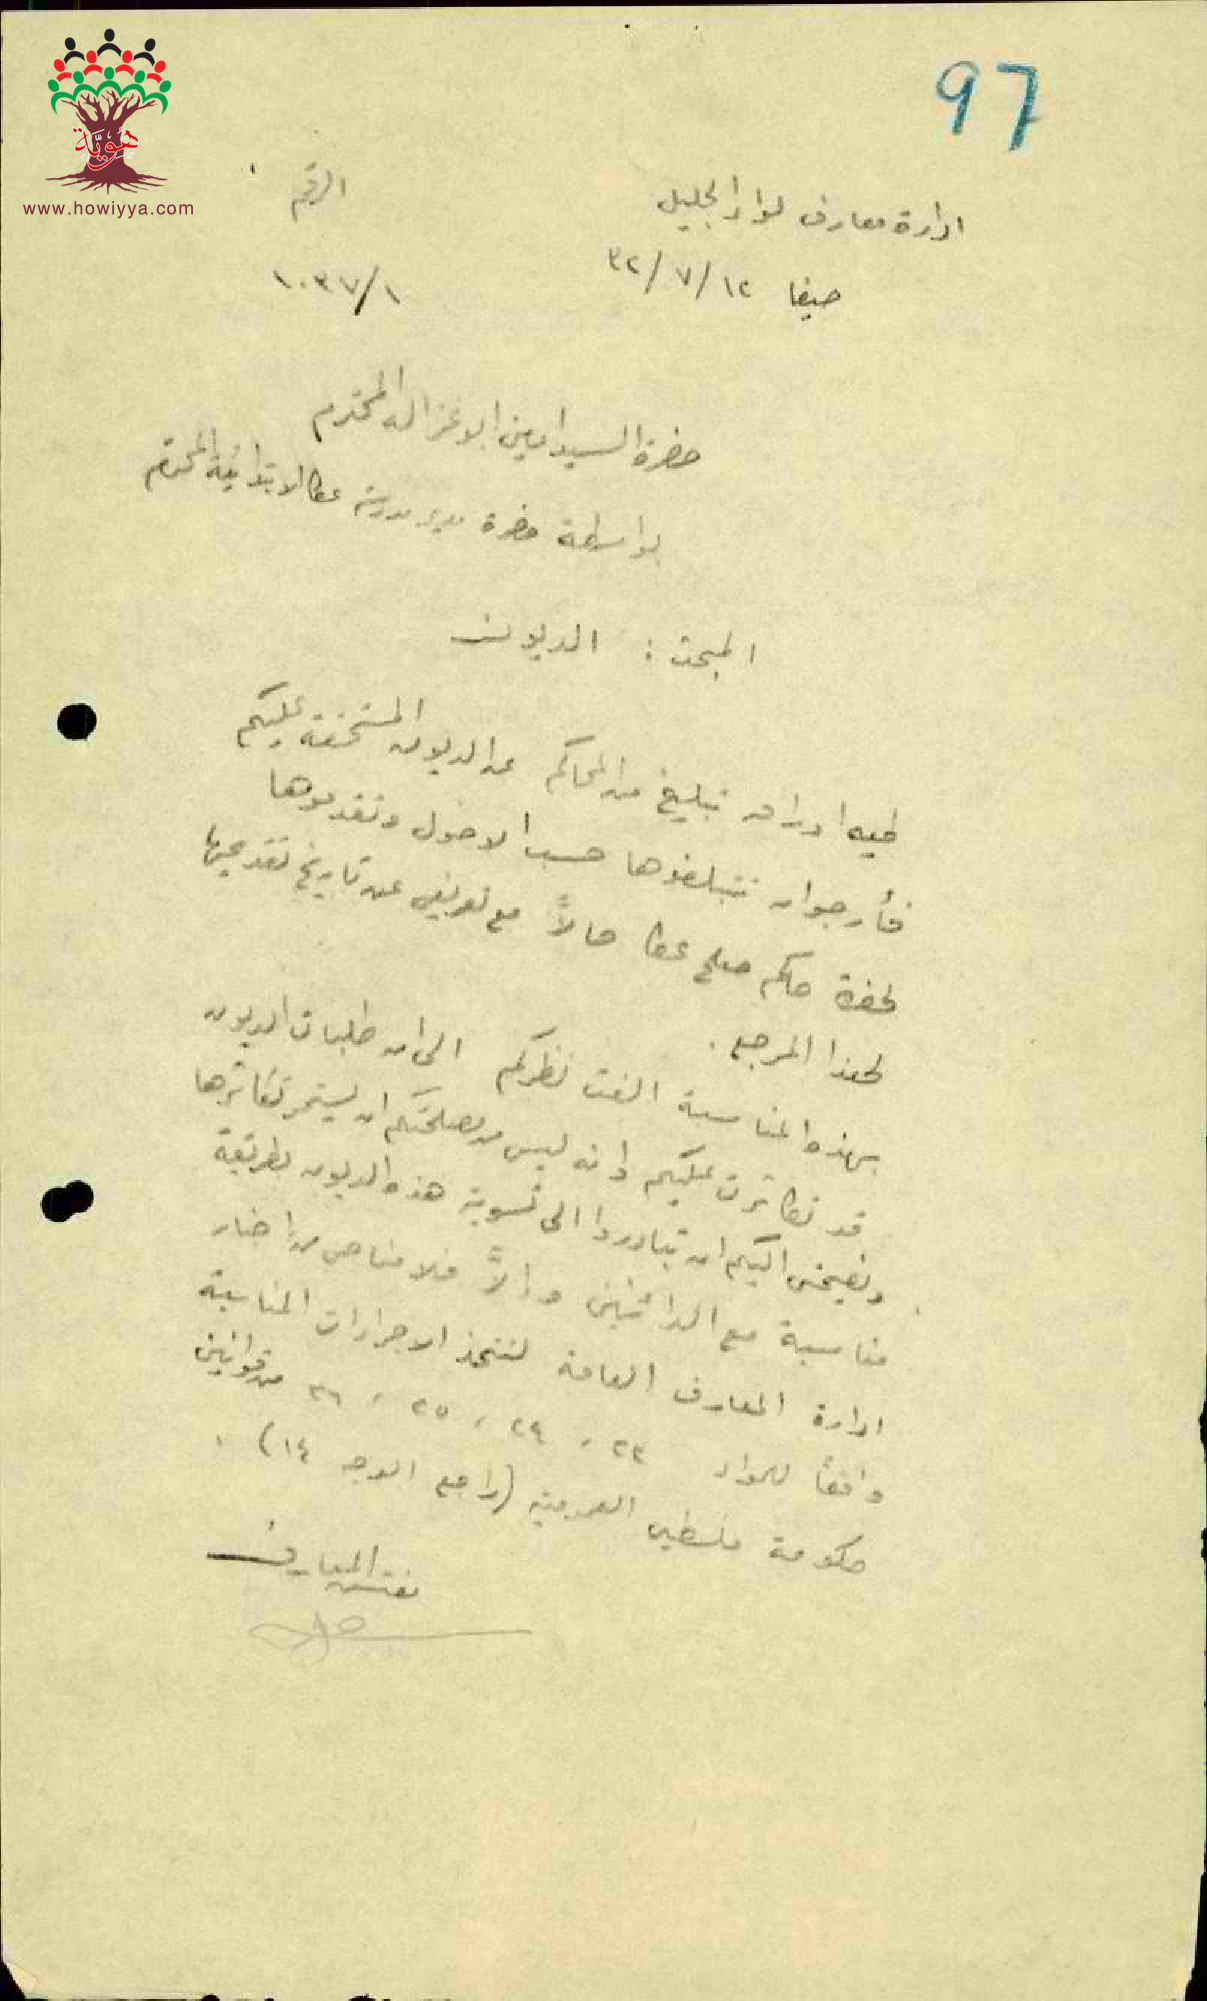 97
هوية
www.howiyya.com
ادارة معارف لواء الجليل
الرقم
حيفا ١٢/٧/٣٢
١٠٣٧/١
حضرة السيد امين ابو غزاله المحترم
بواسطة حضرة مدير مدرسة عكا الابتدائية المحترم
المبحث : الديون
طيه اوراق تبليغ من المحاكم عن الديون المستحقة عليكم
فأرجو ان تتبلغوها حسب الاصول وتقدموها
لحضرة حاكم صلح عكا حالاً مع تعريفي عن تاريخ تقديمها
لهذا المرجع .
بهذه المناسبة الفت نظركم الى ان طلبات الديون
قد تكاثرت عليكم وانه ليس من مصلحتكم ان يستمر تكاثرها
ونصيحتي اليكم ان تبادروا الى تسوية هذه الديون بطريقة
مناسبة مع الدائنين والاَّ فلا مناص من اخبار
ادارة المعارف العامة لتتخذ الاجراءات المناسبة
وافقاً للمواد ٢٣ ، ٢٤ ، ٢٥ ، ٢٦ من قوانين
حكومة فلسطين العمومية (راجع الوجه ١٤) .
مفتش المعارف